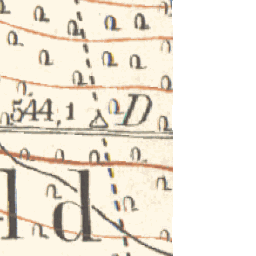 544,1 D
ld